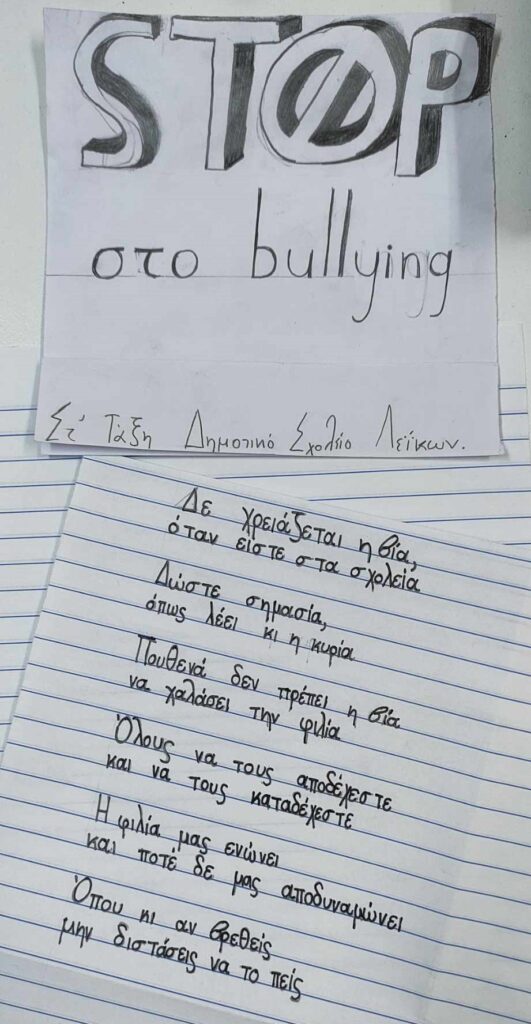 STOP
στο bullying
Στ' Τάξη Δημοτικό Σχολείο Λεϊκων.
Δε χρειάζεται η βία,
όταν είστε στα σχολεία
Δώστε σημασία,
όπως λέει κι η κυρία
Πουθενά δεν πρέπει η βία
να χαλάσει την φιλία
Όλους να τους αποδέχεστε
και να τους καταδέχεστε
Η φιλία μας ενώνει
και ποτέ δε μας αποδυναμώνει
Όπου κι αν βρεθείς
μην διστάσεις να το πείς